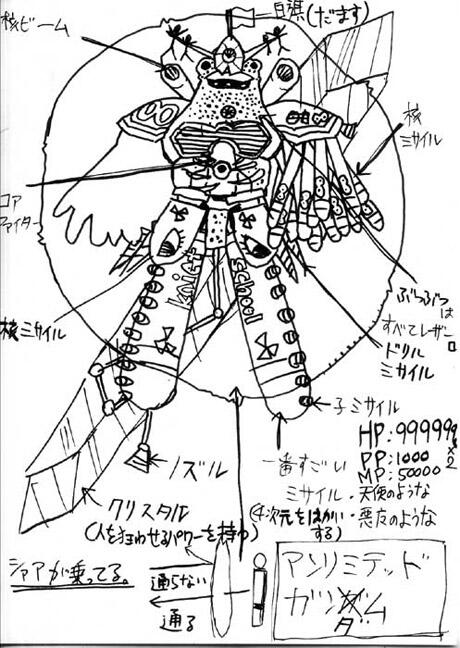 白旗(だます)
核ビーム
核
ミサイル
コア
ファイター
核ミサイル
ぶつぶつ
は
すべてレザー
ドリル
ミサイル
knift
school
子ミサイル
ノズル
一番すごい
ミサイル
(4次元をはかい
する)
クリスタル
(人を狂わせるパワーを持つ)
HP:999999
PP:1000
MP:50000
・天使のような
・悪友のような
シャアが乗ってる。
通らない
通る
アンリミテッド
ガンダム